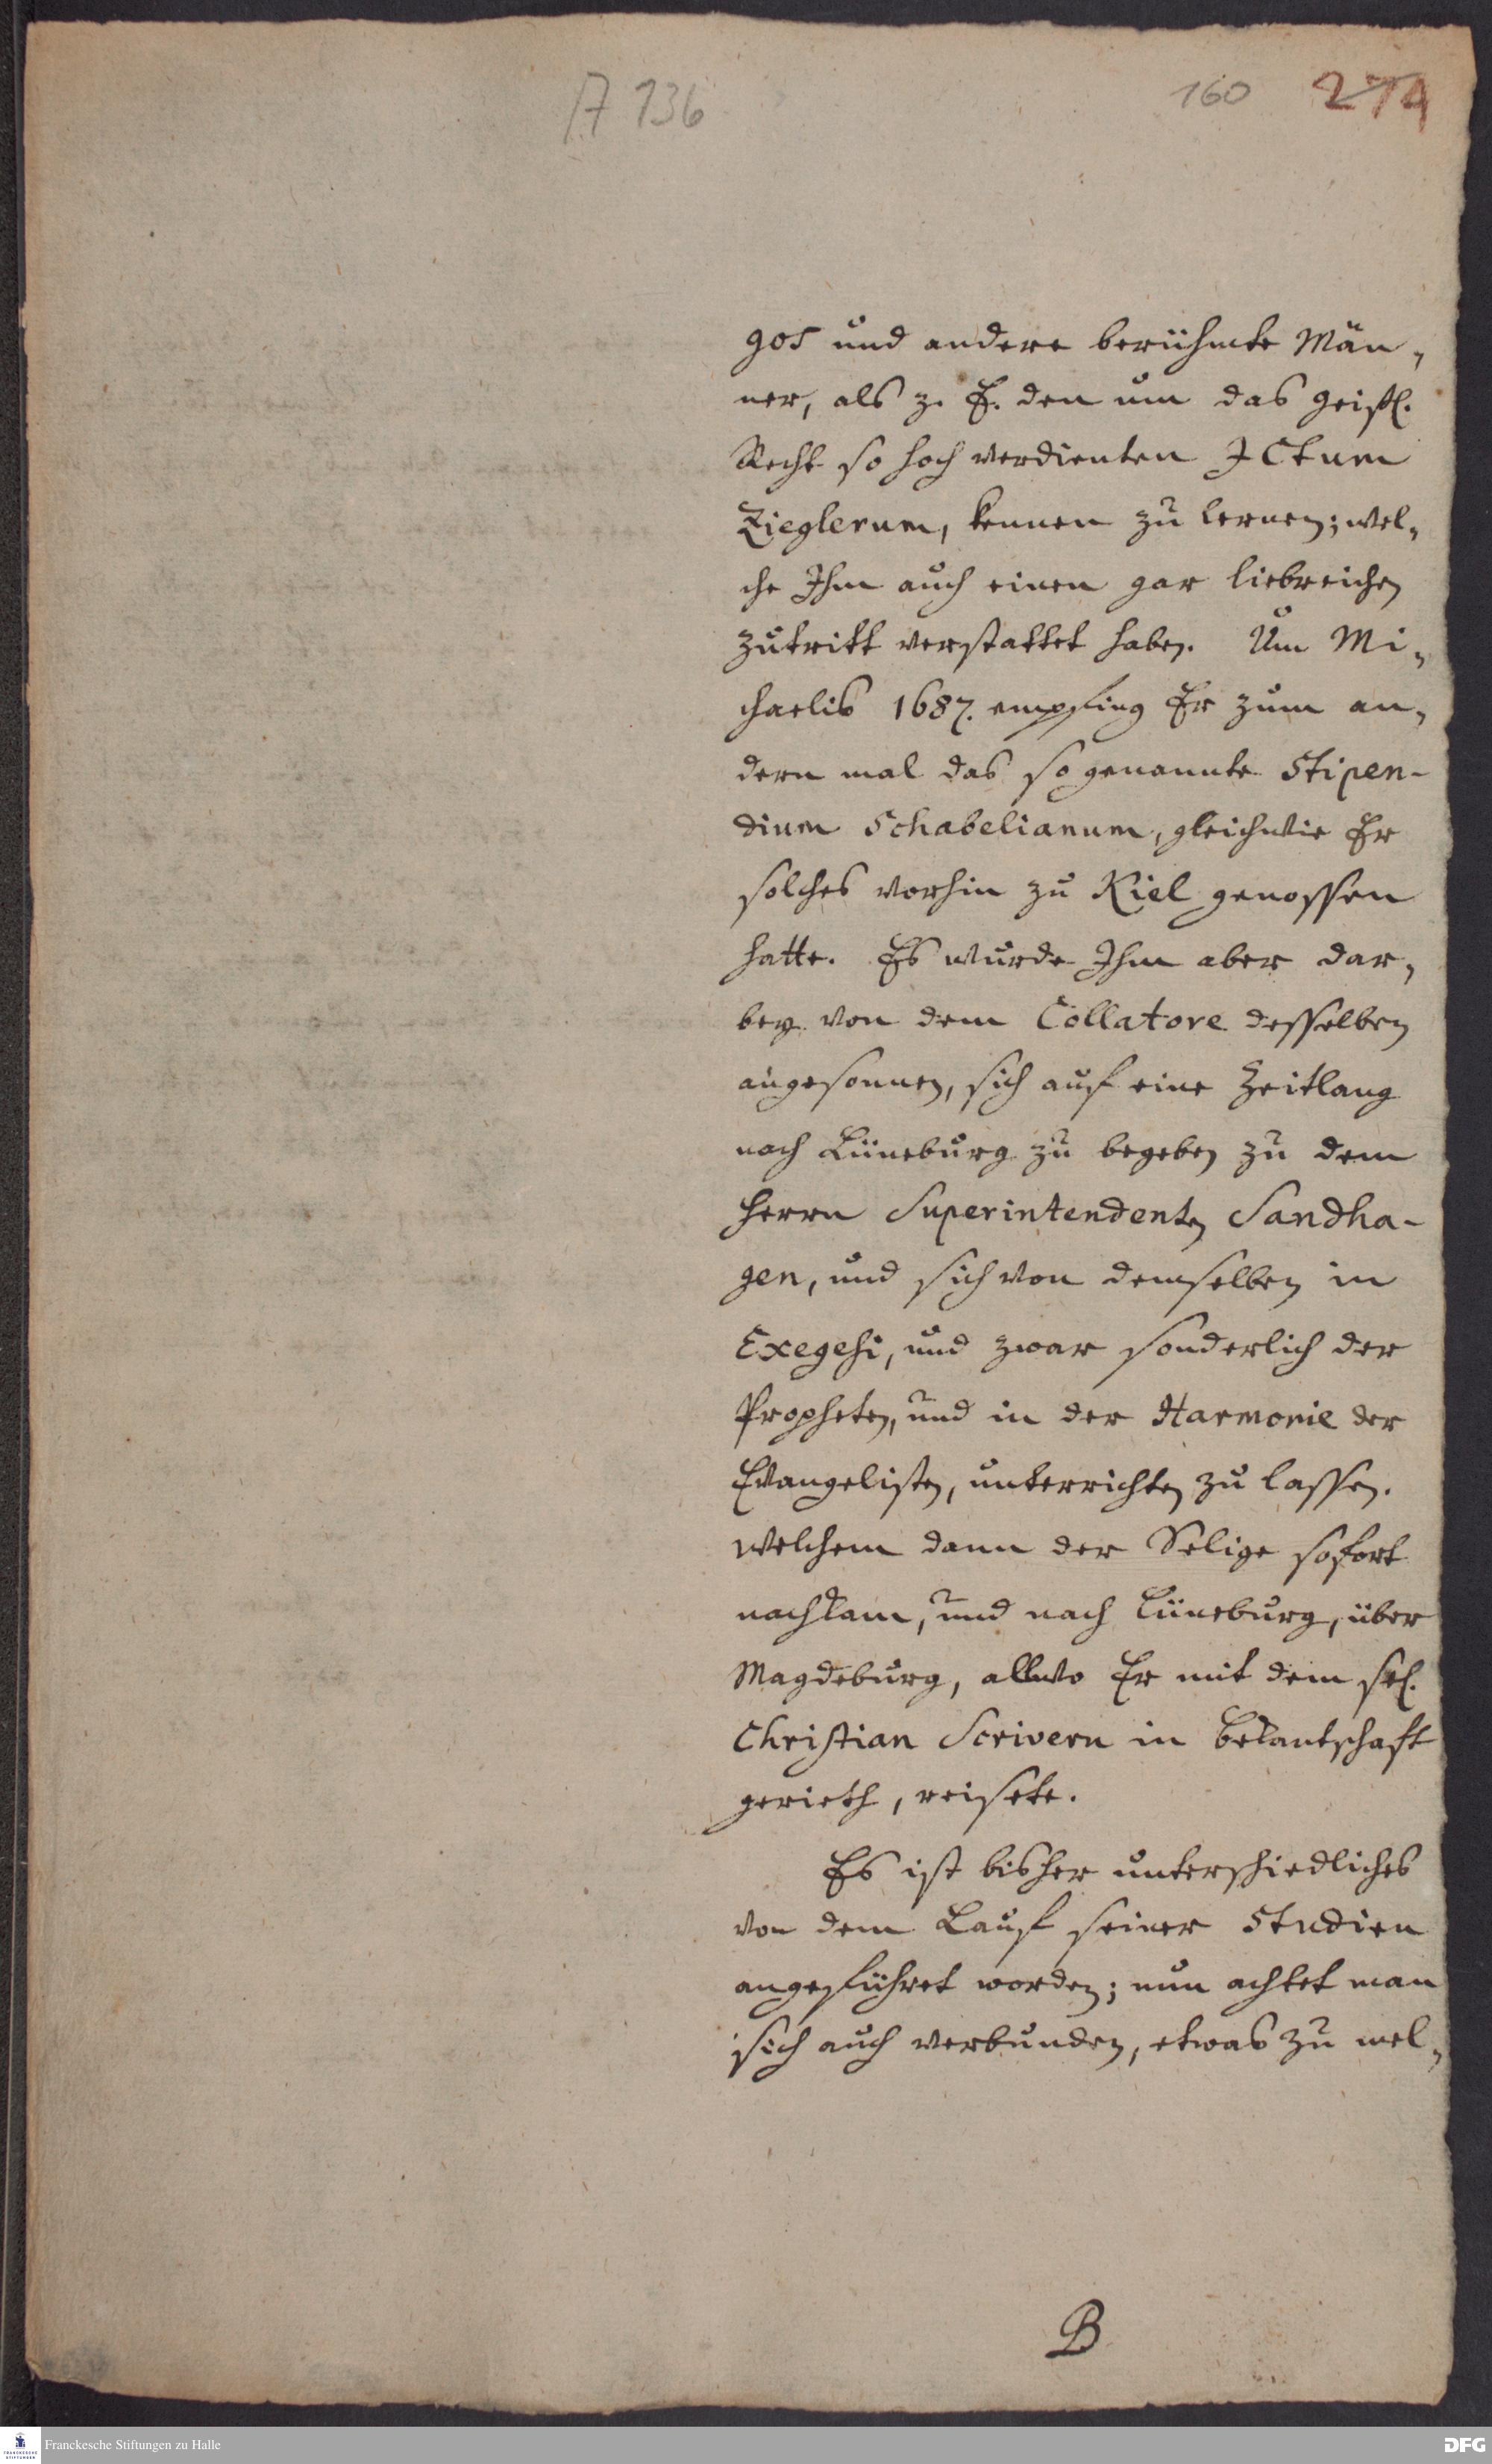 A 136
160 274
gos und andere berühmte Män„
ner, als z. E. den um das geistl.
Recht so hoch verdienten JCtum
Zieglerum, kennen zu lernen; wel„
che Ihm auch einen gar liebreichen
zutritt verstattet haben. Um Mi„
chaelis 1687. empfing Er zum an„
dern mal das so genannte Stipen-
dium Schabelianum, gleichwie Er
solches vorhin zu Kiel genossen
hatte. Es wurde Ihm aber dar„
bey von dem Collatore desselben
angesonnen, sich auf eine Zeitlang
nach Lüneburg zu begeben zu dem
Herrn Superintendenten Sandha-
gen, und sich von demselben in
Exegesi, und zwar sonderlich der
Propheten, und in der Harmonie der
Evangelisten, unterrichten zu lassen.
Welchem dann der Selige sofort
nachkam, und nach Lüneburg, über
Magdeburg, allwo Er mit dem sel.
Christian Scrivern in bekantschaft
gerieth, reisete.
Es ist bisher unterschiedliches
von dem Lauf seiner Studien
angeführet worden; nun achtet man
sich auch verbunden, etwas zu mel„
B
Franckesche Stiftungen zu Halle
DFG